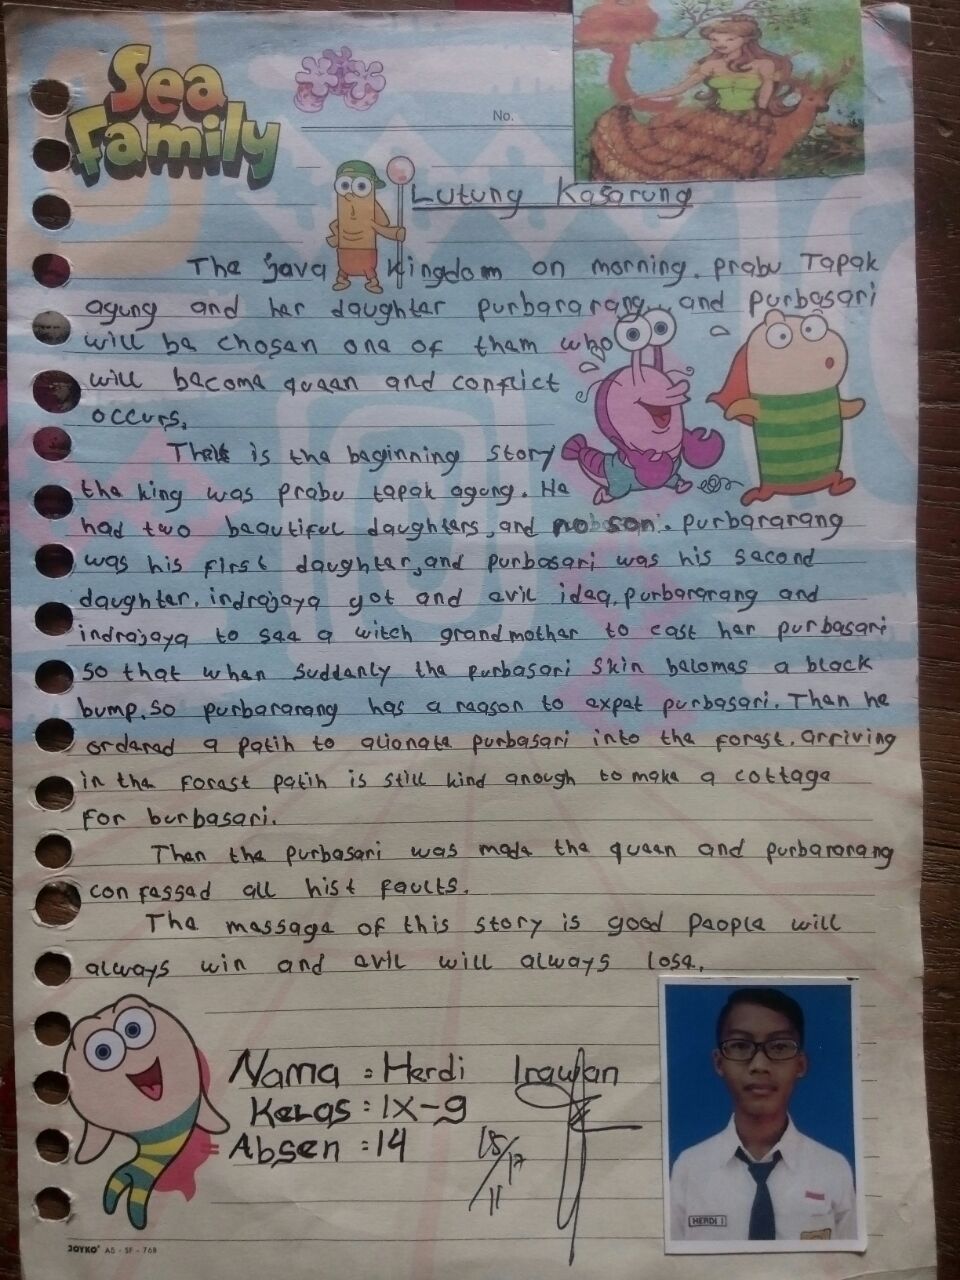 Sea
Family
No.
Lutung Kasarung
The java kingdom on morning. prabu Tapak
agung and her daughter purbararang, and purbasari
will be chosan one of tham who
will bacoma quaan and conflict
occurs.
This is tha baginning story
tha king was prabu tapak agung. Ha
had two baautiful daughtars, and no son. purbararang
was his first daughtar, and purbasari was his sacond
daughtar. indrajaya got and avil idaa. purbararang and
indrajaya to saa a witch grandmothar to cast har purbasari
so that whan suddanly tha purbasari skin balomas a black
bump. so purbararang has a raason to axpat purbasari. Than ha
ordarad a patih to alionata purbasari into tha forast. arriving
in tha forast patih is still kind anough to maka a cottaga
for burbasari.
Than tha purbasari was mada tha quaan and purbararang
confassad all hist faults.
Tha massaga of this story is good paopla will
always win and avil will always losa.
Nama : Herdi Irawan
Kelas : IX-9
Absen : 14
HERDI I
JOYKO A5 - SF - 768